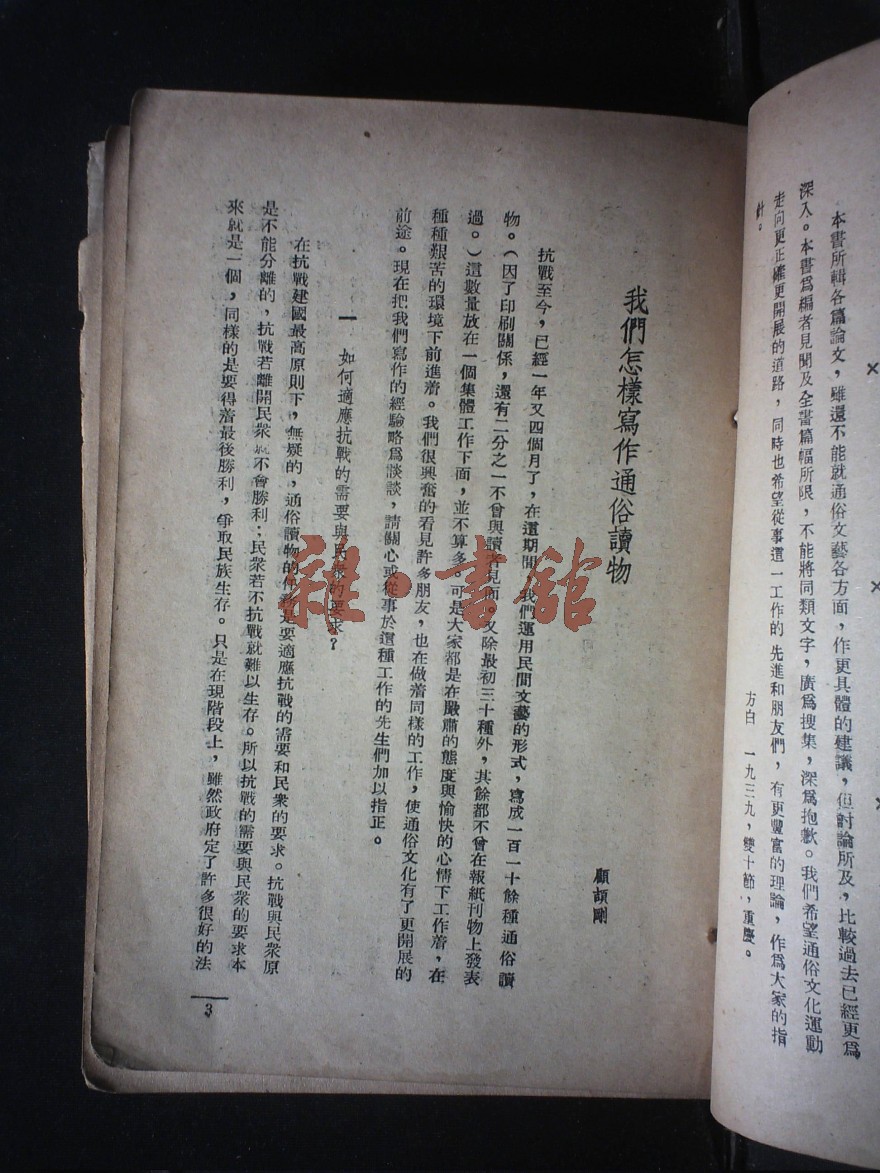 本書所輯各篇論文，雖還不能就通俗文藝各方面，作更具體的建議，但討論所及，比較過去已經更爲
深入。本書爲編者見聞及全書篇幅所限，不能將同類文字，廣爲搜集，深爲抱歉。我們希望通俗文化運動
走向更正確更開展的道路，同時也希望從事這一工作的先進和朋友們，有更豐富的理論，作爲大家的指
針。
方白　一九三九，雙十節，重慶。
我們怎樣寫作通俗讀物
顧頡剛
抗戰至今，已經一年又四個月了，在這期間，我們運用民間文藝的形式，寫成一百一十餘種通俗讀
物。（因了印刷關係，還有二分之一不曾與讀者見面。又除最初三十種外，其餘都不曾在報紙刊物上發表
過。）這數量放在一個集體工作下面，並不算多。可是大家都是在嚴肅的態度與愉快的心情下工作着，在
種種艱苦的環境下前進着。我們很興奮的看見許多朋友，也在做着同樣的工作，使通俗文化有了更開展的
前途。現在把我們寫作的經驗略爲談談，請關心或從事於這種工作的先生們加以指正。
一　如何適應抗戰的需要與民衆的要求？
在抗戰建國最高原則下，無疑的，通俗讀物的任務是要適應抗戰的需要和民衆的要求。抗戰與民衆原
是不能分離的，抗戰若離開民衆就不會勝利；民衆若不抗戰就難以生存。所以抗戰的需要與民衆的要求本
來就是一個，同樣的是要得着最後勝利，爭取民族生存。只是在現階段上，雖然政府定了許多很好的法
3
雜·書館